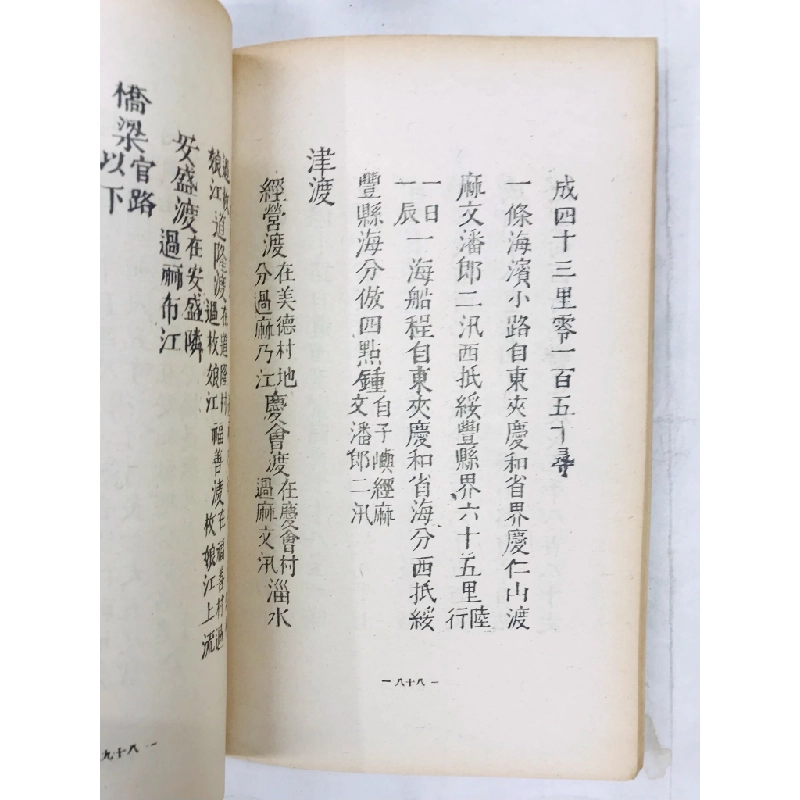 成四十三里零一百五十尋
一條海濱小路自東夾慶和省界慶仁山渡
麻文潘郎二汛西抵綏豐縣界六十五里陸行
一日一辰一海船程自東夾慶和省海分西抵綏
豐縣海分倣四點鍾自子嶼經麻文潘郎二汛
津渡
經營渡在美德村地分過麻乃江慶會渡在慶會村過麻文汛淄水
一八十八一
道隆渡在道隆村過枚娘江福善渡在福善村過枚娘江上流
安盛渡在安盛隣過麻布江
橋梁官路以下
九十八一